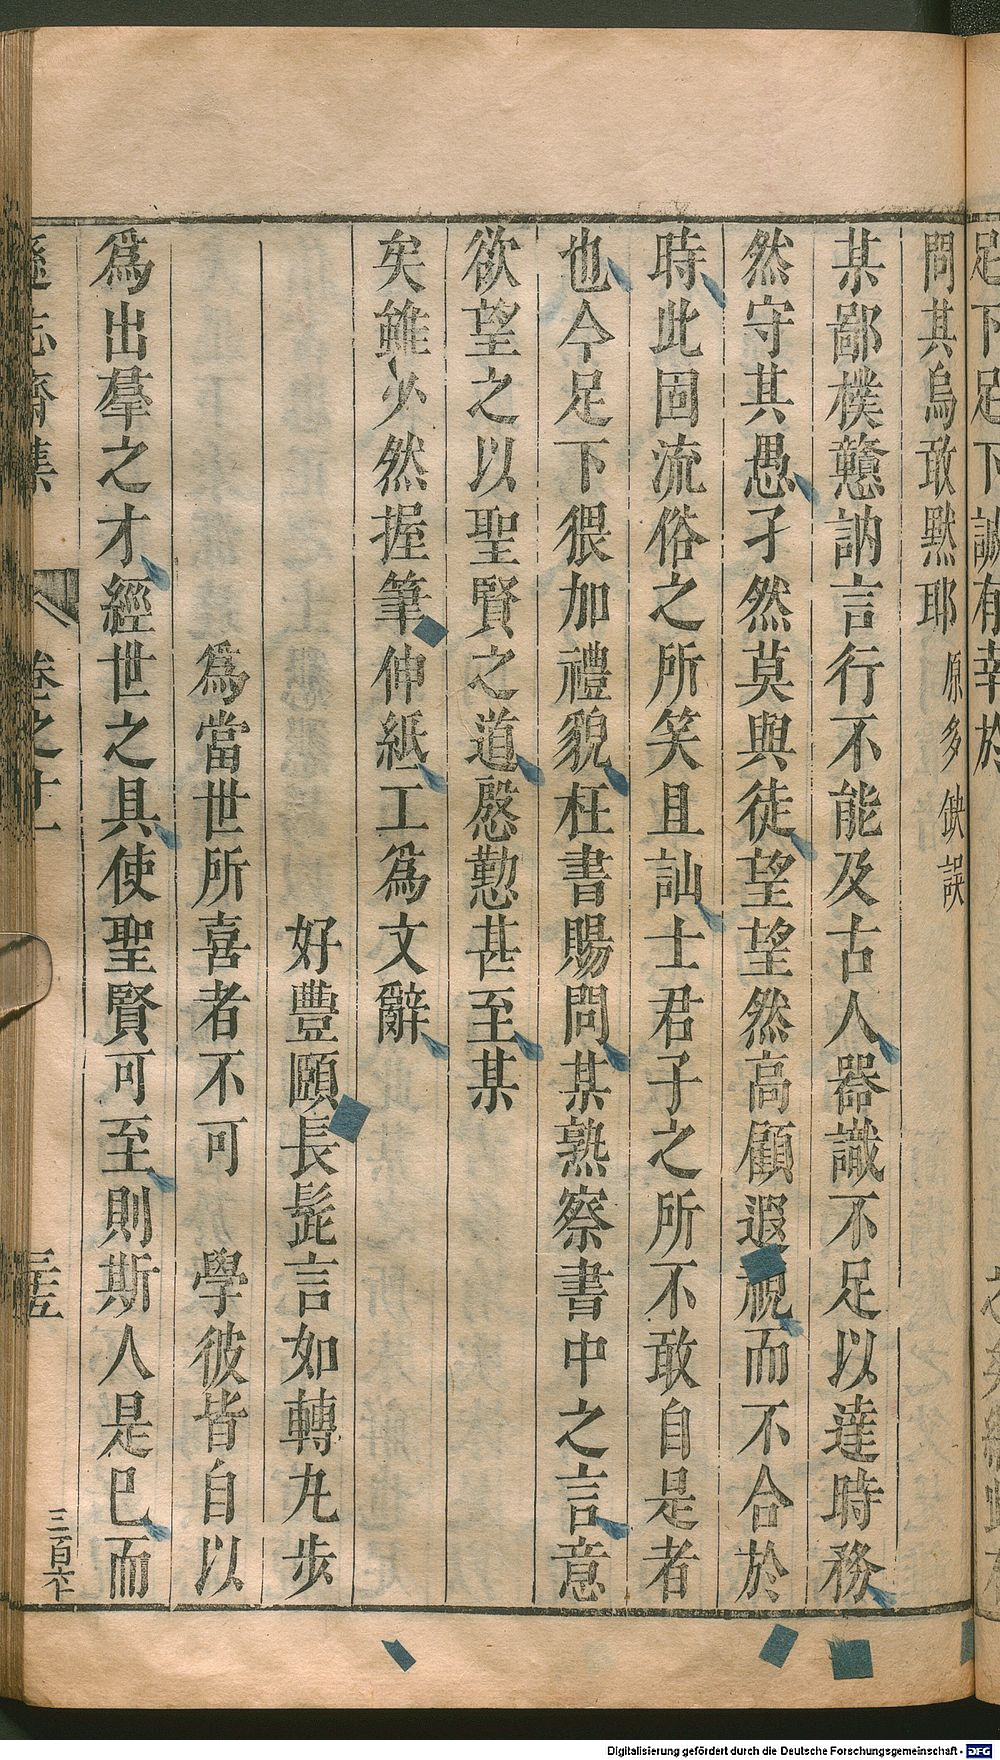 足下足下誠有幸於
問其烏敢黙耶 原多缺誤
某鄙樸戇訥言行不能及古人器識不足以達時務
然守其愚孑然莫與徒望望然高顧遐視而不合於
時此固流俗之所笑且訕士君子之所不敢自是者
也今足下猥加禮貌枉書賜問某熟察書中之言意
欲望之以聖賢之道慇懃甚至某
矣雖少然握筆伸紙工爲文辭
好豐頤長髭言如轉丸步
爲當世所喜者不可 學彼皆自以
爲出羣之才經世之具使聖賢可至則斯人是巳而
遜志齋集 卷之十一 三百六十
Digitalisierung gefördert durch die Deutsche Forschungsgemeinschaft - DFG